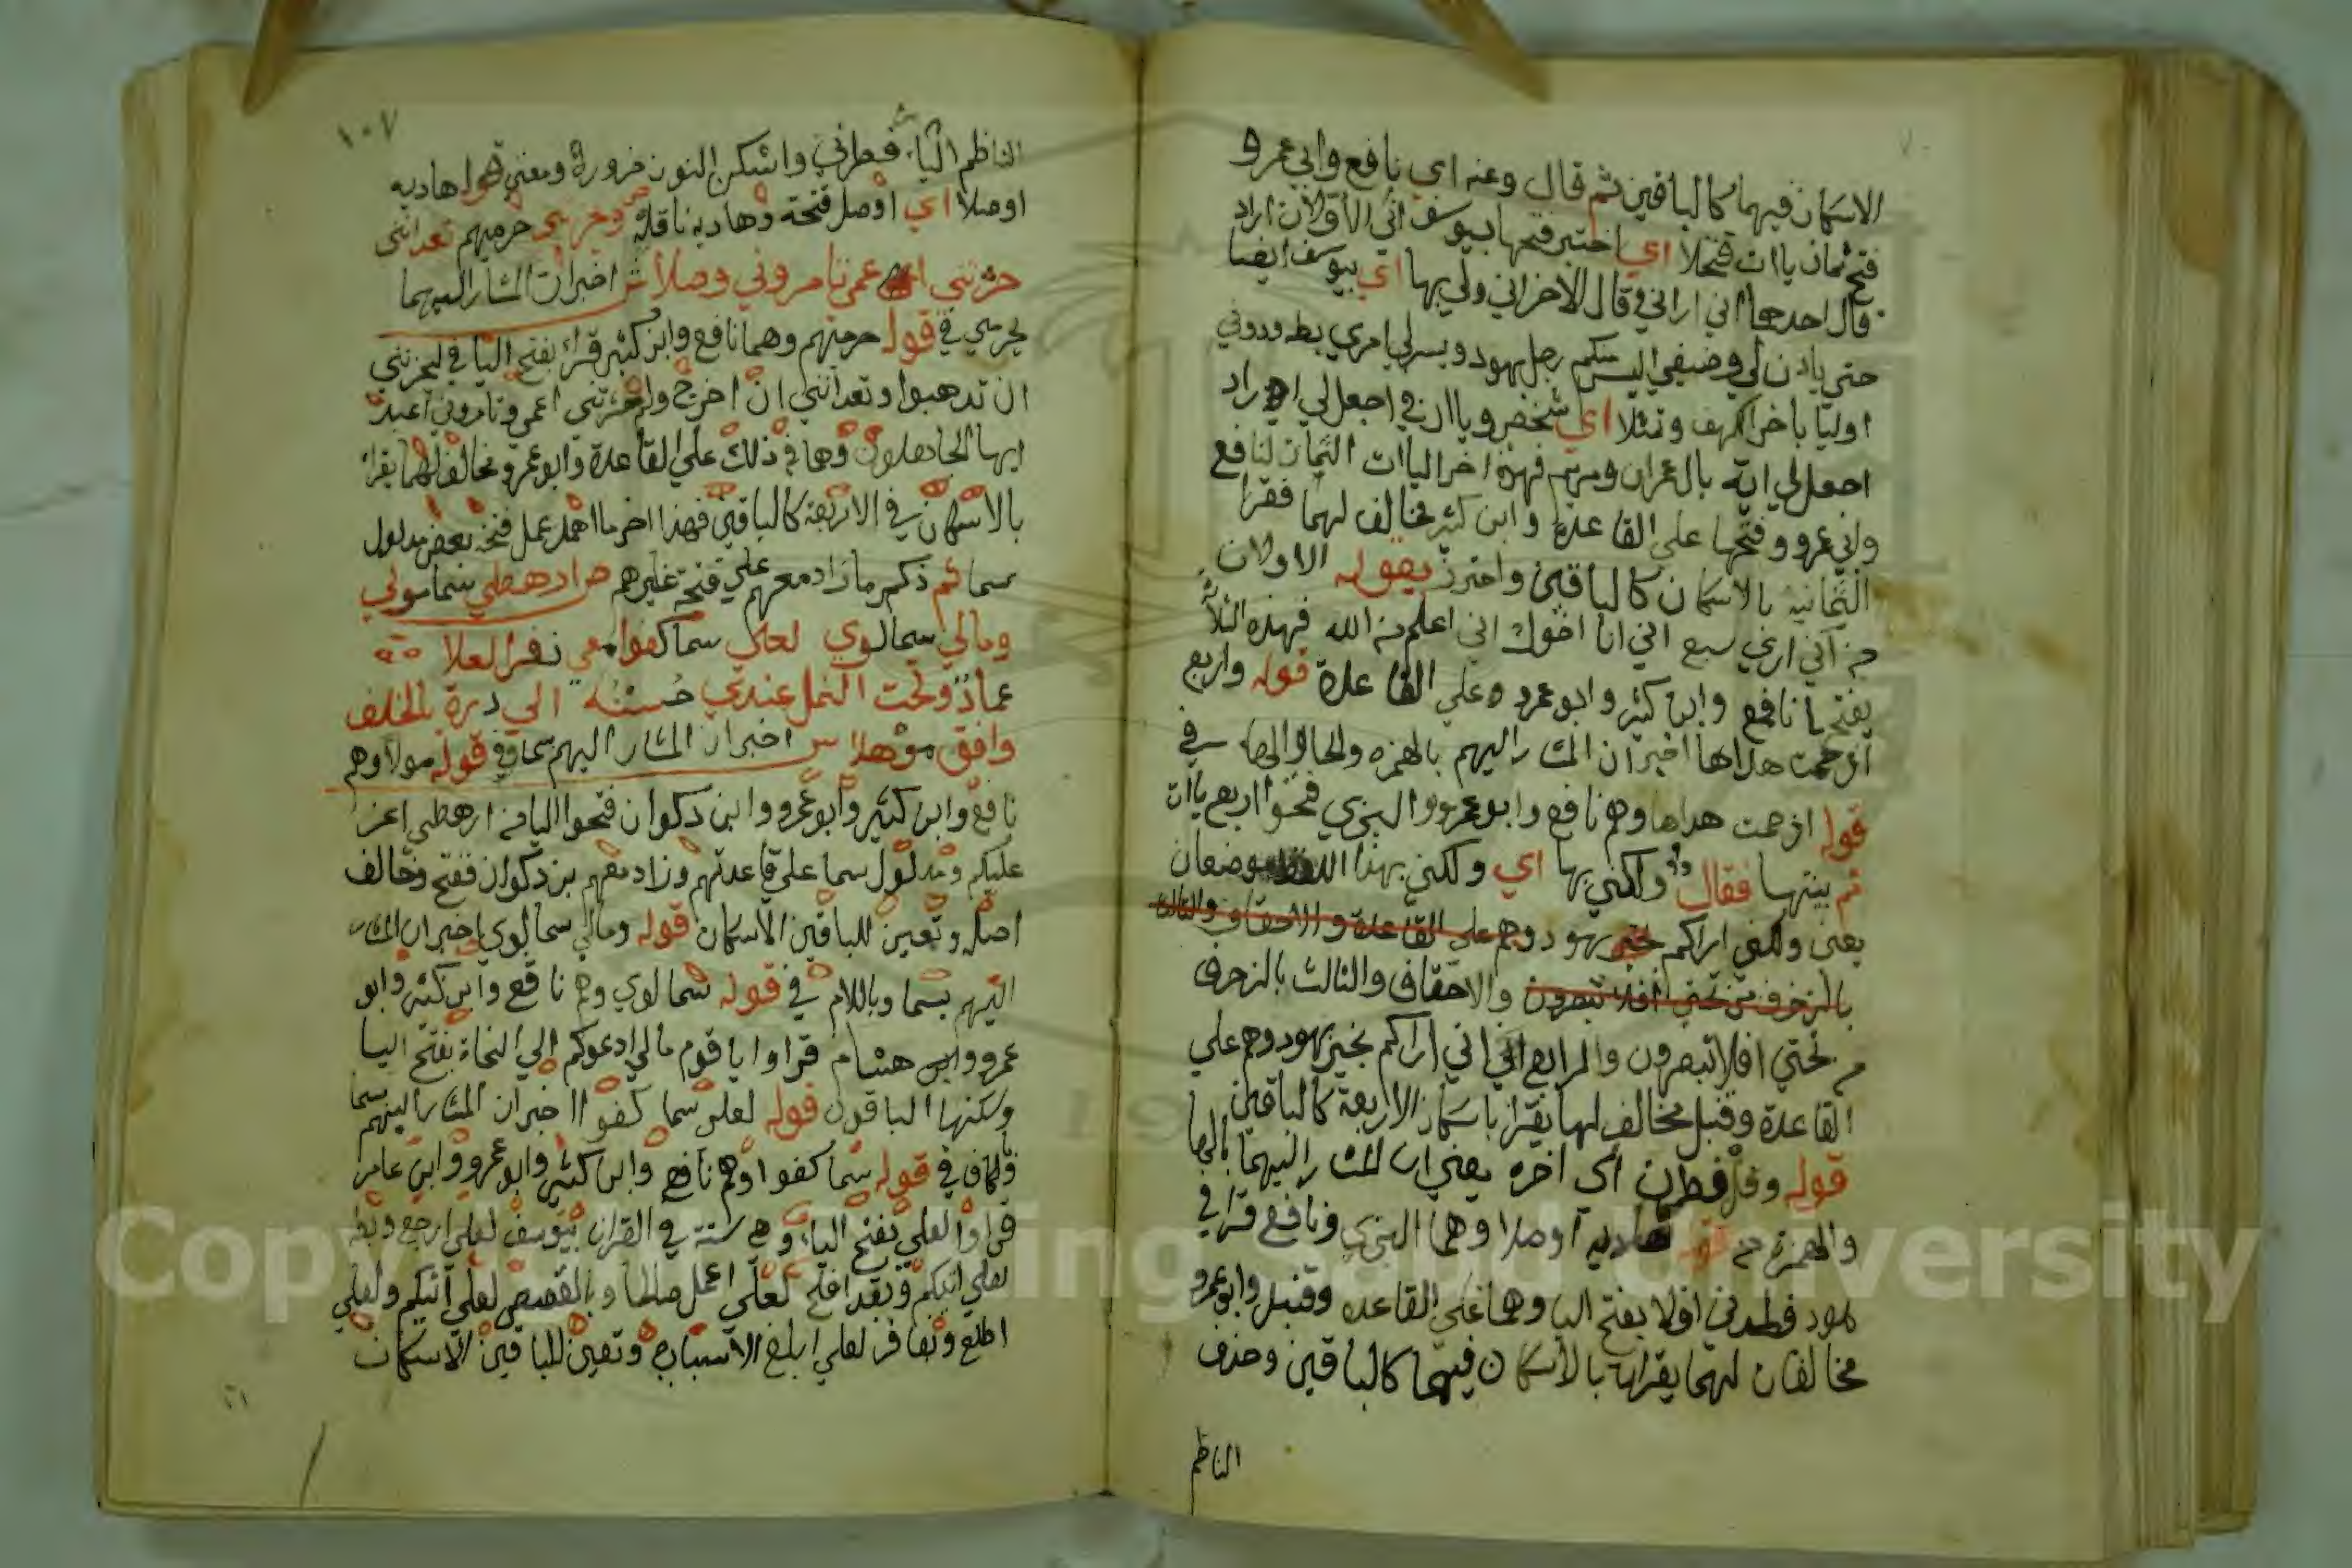 الاسكان فيهما كالباقين ثم قال وعنه اي نافع وابي عمرو
فتح ثمان ياات تنخلا اي اختير فتحها بيوسف اني الاولان اراد
قال احدهما اني اراني وقال الاخر اني ولي بها اي بيوسف ايضا
حتى ياذن لي وضيفي اليس منكم رجل بهود ويسر لي امري بطه ودوني
اوليا باخر الكهف وتمثلا اي شخص وياان في اجعل لي اراد
اجعل لي اية بال عمران ومريم فهذه اخر الياات الثمان لنافع
وابي عمرو وفتحها علي القاعدة وابن كثير مخالف لهما فقرا
الثمانية بالاسكان كالباقين واحترز بقوله الاولان
من اني ارى سبع اني انا اخوك اني اعلم من الله فهذه الثلاثة
يفتحها نافع وابن كثير وابو عمرو علي القاعدة قوله واربع
اذ حمت هداها اخبر ان المشار اليهم بالهمزه والحا والها في
قوله اذ حمت هداها وهم نافع وابو عمرو والبزي فتحوا اربع ياات
ثم بينها فقال ولكني بها اي ولكني بهذا اللفظ موضعان
يعني ولكني اراكم بهود وهم علي القاعدة والاحقاف والثالث
بالزخرف من تحتي افلا تبصرون والاحقاف والثالث بالزخرف
من تحتي افلا تبصرون والرابع اني اراكم بخير بهود وهم علي
القاعدة وقنبل مخالف لها يقرا باسكان الاربعة كالباقين
قوله وقل فطرن الى اخره يعني ان المشار اليهما بالها
والهمزة من قوله هاديه اوصلا وهما البزي ونافع قرا في
هود فطرني افلا بفتح اليا وهما علي القاعده وقنبل وابو عمرو
مخالفان لهما يقراان بالاسكان فيهما كالباقين وحذف
الناظم
١٠٧
الناظم الياء فطرني واسكن النون ضرورة ومعني هاديه
اوصلا اي اوصل فتحة وهاديه ناقله ويحزنني حرميهم تعدانني
حشرتني اعمى تامروني وصلا ش اخبر ان المشار اليهما
بحرمي في قوله حرميهم وهما نافع وابن كثير قرا بفتح اليا في ليحزنني
ان تذهبوا وتعدانني ان اخرج ولم حشرتني اعمى وتامروني اعبد
ايها الجاهلون وهما في ذلك علي القاعدة وابو عمرو مخالف لهما يقرا
بالاسكان في الاربعة كالباقين فهذا اخر ما اهمل عمل فتحه بعض مدلول
سما ثم ذكر ما زاد معهم علي فتحه غيرهم ص ارهطي سما مولي
ومالي سما لوي لعلي سما كفوا معي نفر العلا
عماد وتحت النمل عندي حسنه الي دره بالخلف
وافق موهلا س اخبر ان المشار اليهم بسما وفي قوله مولا وهم
نافع وابن كثير وابو عمرو وابن ذكوان فتحوا اليا من ارهطي اعز
عليكم ومدلول سما علي قاعدتهم وزاد معهم بن ذكوان ففتح وخالف
اصله وتعين للباقين الاسكان قوله ومالي سما لوي اخبر ان المشار
اليهم بسما وباللام في قوله سما لوي وهم نافع وابن كثير وابو
عمرو وابن هشام قراوا يا قوم مالي ادعوكم الي النجاة بفتح اليا
وسكنها الباقون قوله لعلي سما كفوا اخبر ان المشار اليهم بسما
والكاف في قوله سما كفوا وهم نافع وابن كثير وابو عمرو وابن عامر
قراوا لعلي بفتح الياء وهي ستة في القران بيوسف لعلي ارجع وبطه
لعلي اتيكم وبقد افلح لعلي اعمل صالحا وبالقصص لعلي آتيكم ولعلي
اطلع وبغافر لعلي ابلغ الاسباب وتعين للباقين الاسكان